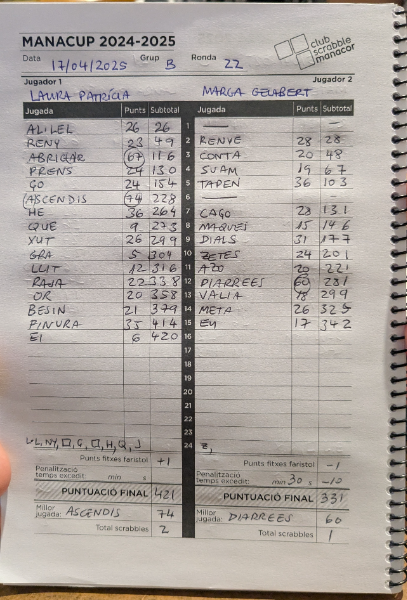 MANACUP 2024-2025
club scrabble manacor
Data 17/04/2025 Grup B Ronda 22
Jugador 1 Jugador 2
LAURA PATRICIA MARGA GELABERT
Jugada Punts Subtotal Jugada Punts Subtotal
ALILEL 26 26 1 — —
RENY 23 49 2 RENYE 28 28
ABRIGAR 67 116 3 CONTA 20 48
PRENS 130 4 SUAM 19 67
GO 24 154 5 TAPEN 36 103
ASCENDIS 74 228 6 —
HE 36 264 7 CAGO 28 131
QUE 9 273 8 MAQUES 15 146
XUT 26 299 9 DIALS 31 177
GRA 5 304 10 ZETES 24 201
LLIT 12 316 11 AZO 20 221
RAJA 22 338 12 DIARREES 60 281
OR 20 358 13 VALIA 18 299
BESIN 21 379 14 META 26 325
FINURA 35 414 15 EU 17 342
EI 6 420 16
17
18
19
20
21
22
23
24 Z,
Punts fitxes faristol +1 Punts fitxes faristol -1
Penalització temps excedit: min s Penalització temps excedit: min 30 s -10
PUNTUACIÓ FINAL 421 PUNTUACIÓ FINAL 331
Millor jugada: ASCENDIS 74 Millor jugada: DIARREES 60
Total scrabbles 2 Total scrabbles 1